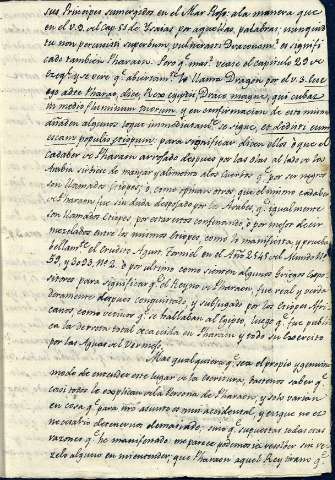 sus Principes sumergidos en el Mar Roxo: a la manera que
en el v. 9. del cap. 51 de Ysaias, por aquellas palabras, nunquid
tu non percussisti superbum, vulnerasti Draconem? es signifi
cado tambien Pharaon. Por q.e mas? vease el capitulo 29 de
Ezeq.l y se vera q.e absolutam.te lo llama Dragon por el v. 3. Ecce
ego ad te Pharao, dice, Rex egypti Draco magne, qui cubas
in medio fluminum tuorum y en confirmacion de esta mismo
añaden algunos, sigue inmediatam.te se sigue, et dedisti eum
escam populis Etiopum para significar dicen ellos, ò que el
cadaver de Pharaon arrojado despues por las olas al lado de la
Arabia sirviese de manjar y alimento a los Cuerbos q.e por ser negros
son llamados Etiopes; ò, como opinan otros que el mismo cadaber
de Pharaon fue sin duda despojado por los Arabes, q.e igualmente
son llamados Etiopes, por estar estos confinando, ò por mejor decir
mezclados entre los mismos Etiopes, como lo manifiesta, y prueba
bellam.te el erudito Agust. Torniel. en el Año 2545 del Mundo N.o
59, y 3023, N.o 2. ò por ultimo como sienten algunos Griegos Expo
sitores para significar q.e el Reyno de Pharaon, fue real y verda
deramente despues conquistado, y subjugado por los Etiopes Afri
canos, como vecinos q.e se hallaban al Egipto, luego q.e fue publi
ca la derrota total acaecida en Pharaon y todo su Exercito
por las Aguas del Vermejo.
Mas qualquiera q.e sea el propio y genuino
modo de entender este lugar de la Escritura, bastenos saber q.e
casi todos lo explican de la Persona de Pharaon, y solo varian
en cosa q.e para n͂ro asunto es mui accidental, y en que no es
necesario detenernos demasiado; sino q.e supuestas todas estas
razones q.e he manifestado, me parece podemos ia decidir sin re
zelo alguno en mi entender, que Pharaon aquel Rey tirano q.e